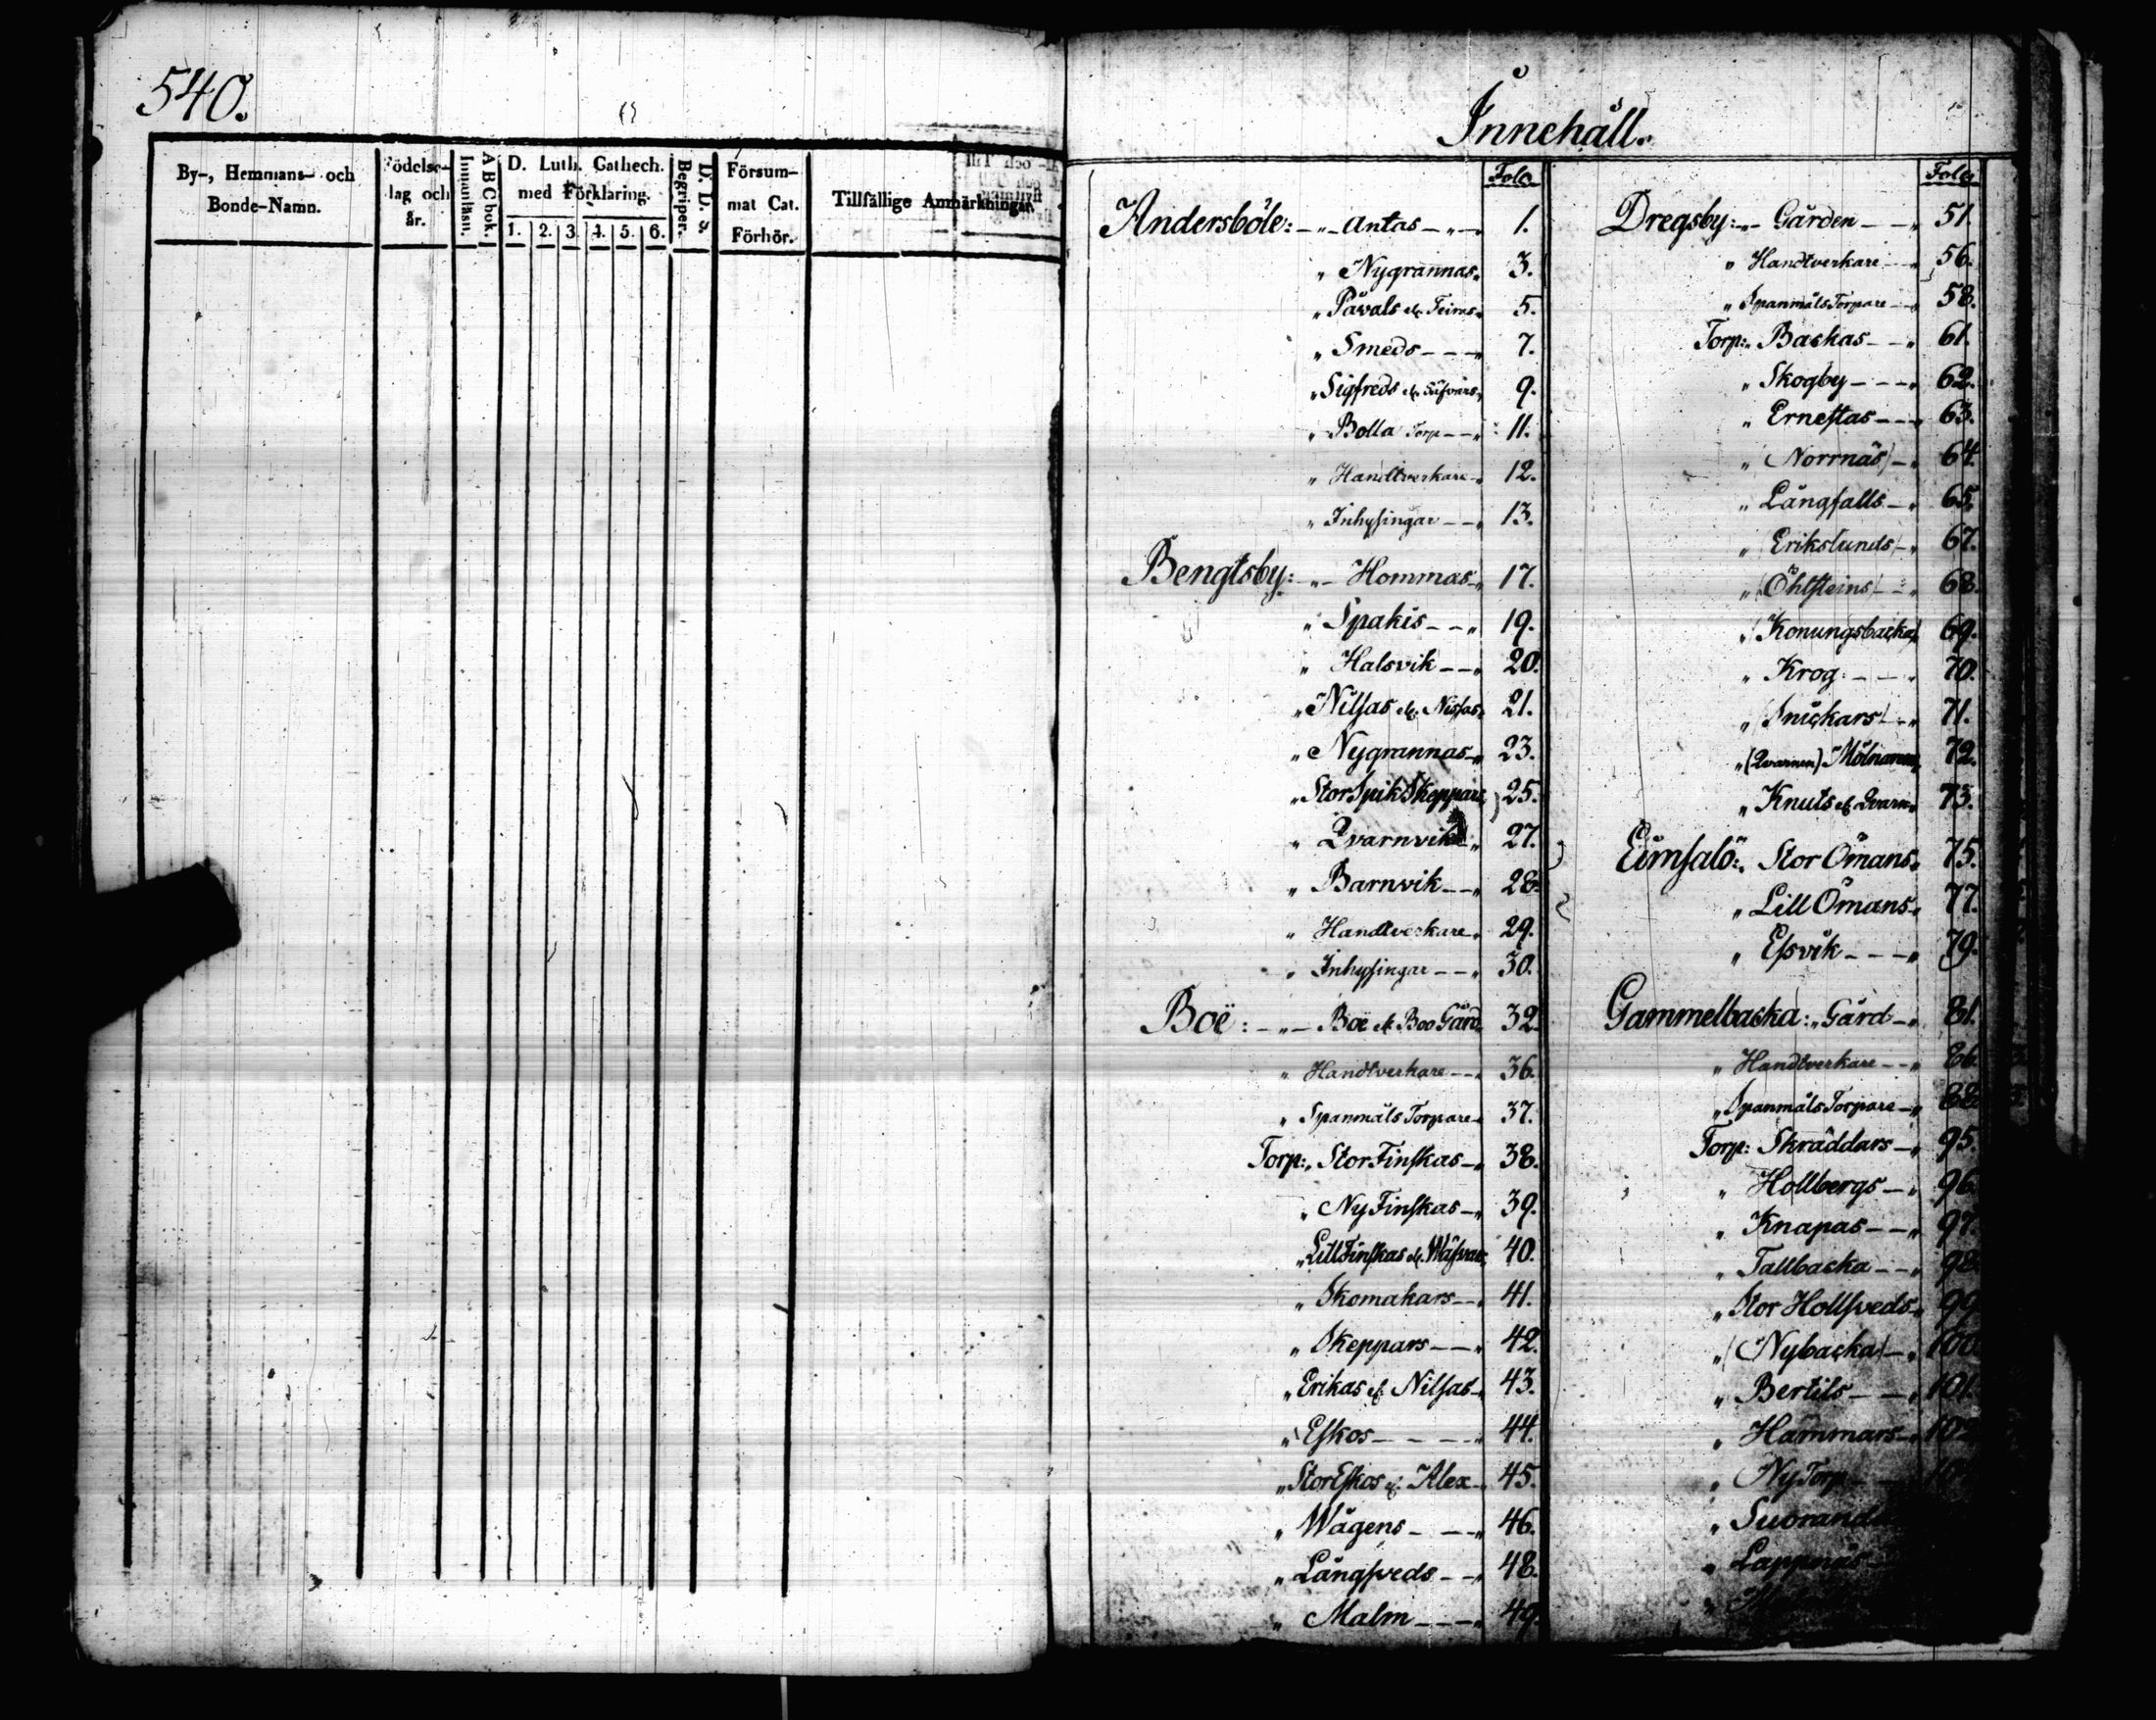 540.
By-, Hemmans- och
Bonde-Namn.
Födelse-
lag och
år.
Innanläsn.
A B C bok.
D. Luth. Cathech.
med Förklaring.
1. 2. 3. 4. 5. 6.
Begriper.
D. D. S.
Försum-
mat Cat.
Förhör.
Tillfällige Anmärkningar.
Innehåll.
Folo.
Andersböle: Antas 1.
" Nygrannas 3.
" Påvals el. Feims 5.
" Smeds 7.
" Sigfreds el. 9.
" Bolla Torp 11.
" Handtverkare 12.
" Inhysingar 13.
Bengtsby: Hommas 17.
" Spakis 19.
" Halsvik 20.
" Nilsas el. Nissas 21.
" Nygrannas 23.
" StorSpik Skeppars 25.
" Qvarnvik 27.
" Barnvik 28.
" Handtverkare 29.
" Inhysingar 30.
Boë: Boë el. Boo Gård 32.
" Handtverkare 36.
" Spanmåls Torpare 37.
Torp: StorFinskas 38.
" NyFinskas 39.
" LillFinskas el. 40.
" Skomakars 41.
" Skeppars 42.
" Erikas el. Nilsas 43.
" Eskos 44.
" StorEskos el. Alex 45.
" Wågens 46.
" Långsveds 48.
" Malm 49.
Folo.
Dregsby: Gården 51.
" Handtverkare 56.
" Spanmåls Torpare 58.
Torp: Backas 61.
" Skogby 62.
" Ernestas 63.
" (Norrnäs) 64.
" Långfalls 65.
" (Erikslunds) 67.
" (Öhlsteins) 68.
" (Konungsbacka) 69.
" Krog 70.
" (Snickars) 71.
" (Qvarnen) Mölnarens 72.
" Knuts el. Qvarn 73.
Eimsalö: Stor Ömans 75.
" Lill Ömans 77.
" Essvik 79.
Gammelbacka: Gård 81.
" Handtverkare 86.
" Spanmåls Torpare 88.
Torp: Skräddars 95.
" Hollbergs 96.
" Knapas 97.
" Tallbacka 98.
" Stor Hollsveds 99
" (Nybacka) 100
" Bertils 101.
" Hammars 102
" NyTorp
" Lappnäs